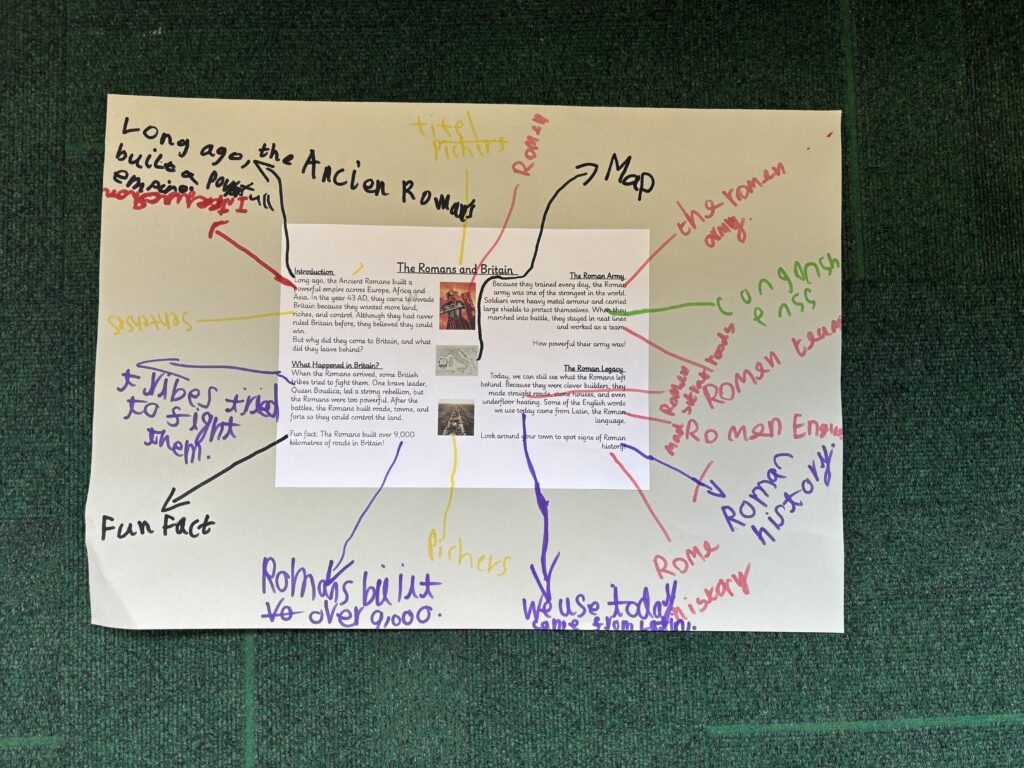 Long ago, the Ancien Romans
buile a
empire.
titel
Pichers
Romen
Map
the romen
army.
The Romans and Britain
Introduction
Long ago, the Ancient Romans built a
powerful empire across Europe, Africa and
Asia. In the year 43 AD, they came to invade
Britain because they wanted more land,
riches, and control. Although they had never
ruled Britain before, they believed they could
win.
But why did they come to Britain, and what
did they leave behind?
What Happened in Britain?
When the Romans arrived, some British
tribes tried to fight them. One brave leader,
Queen Boudica, led a strong rebellion, but
the Romans were too powerful. After the
battles, the Romans built roads, towns, and
forts so they could control the land.
Fun fact: The Romans built over 9,000
kilometres of roads in Britain!
The Roman Army
Because they trained every day, the Roman
army was one of the strongest in the world.
Soldiers wore heavy metal armour and carried
large shields to protect themselves. When they
marched into battle, they stayed in neat lines
and worked as a team.
How powerful their army was!
The Roman Legacy
Today, we can still see what the Romans left
behind. Because they were clever builders, they
made straight roads, stone houses, and even
underfloor heating. Some of the English words
we use today came from Latin, the Roman
language.
Look around your town to spot signs of Roman
history!
Sentenses
tribes tried
to fight
them.
Fun Fact
Romans built
over 9,000.
Pichers
we use today
came from Latin.
Rome
history
Roman
history.
Romen team
Romen
Romen